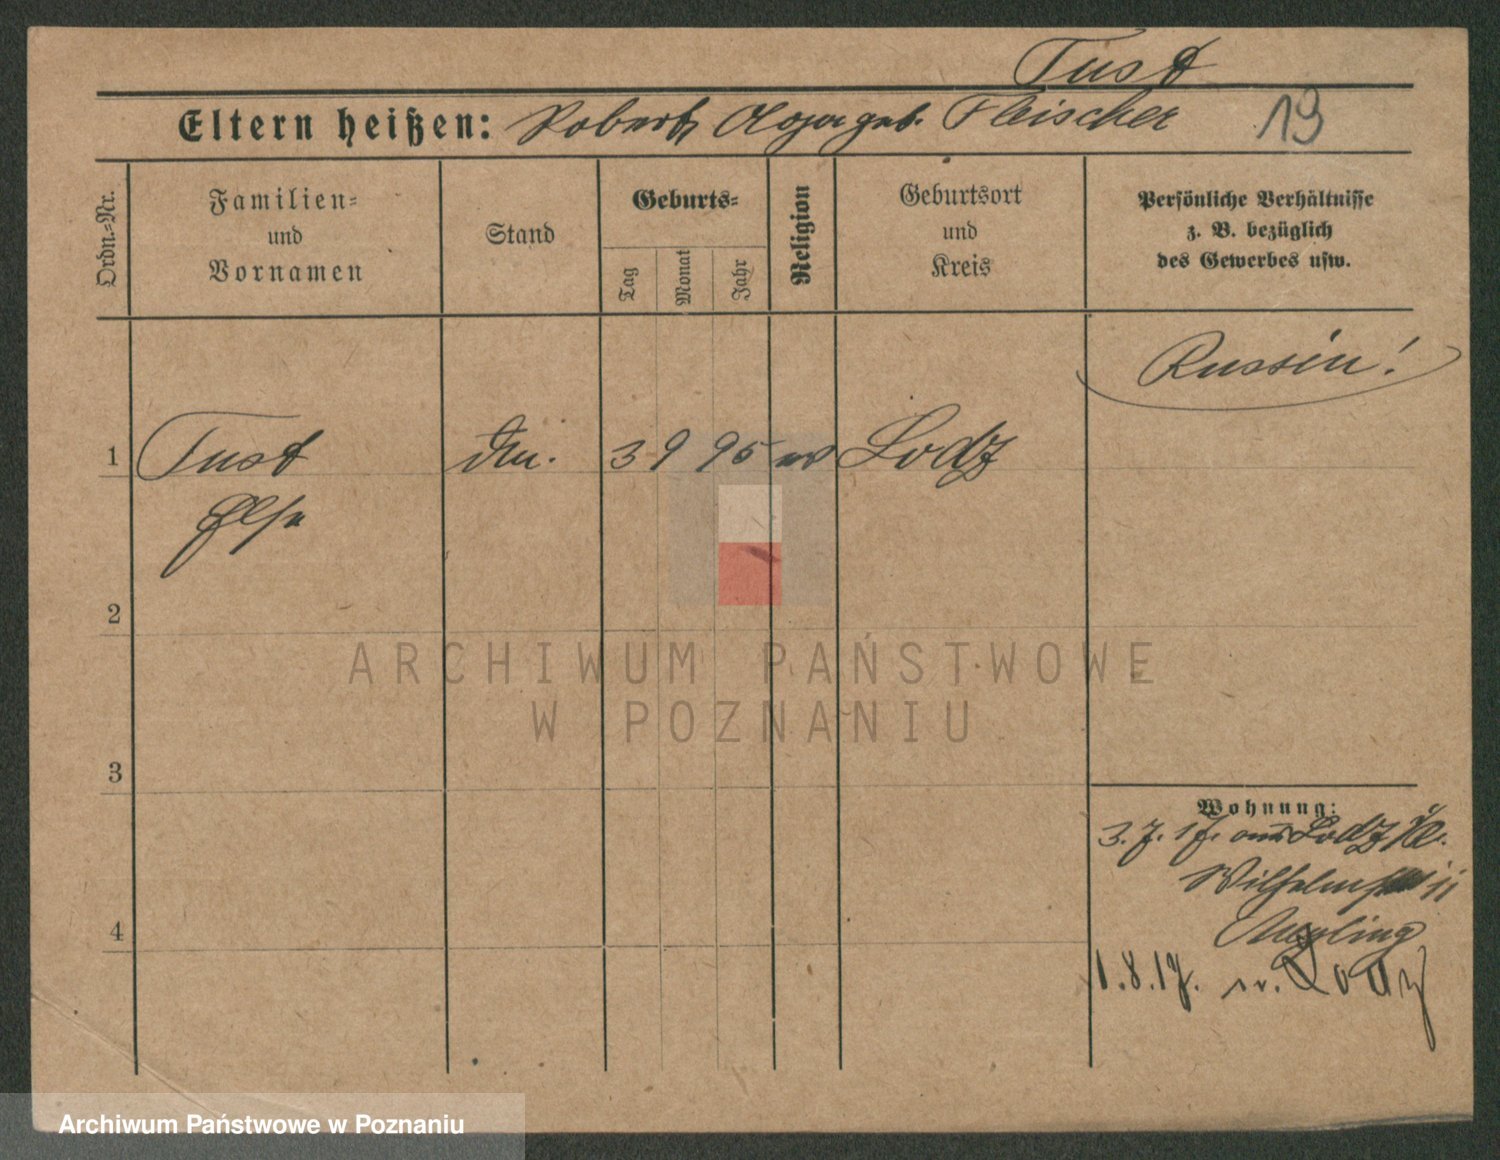 Tust
Eltern heißen: Robert, Olga geb. Fleischer
19
Ordn.-Nr.
Familien-
und
Vornamen
Stand
Geburts-
Tag
Monat
Jahr
Religion
Geburtsort
und
Kreis
Persönliche Verhältnisse
z. B. bezüglich
des Gewerbes usw.
Russin!
1 Tust 3 9 95 ev Lodz
Else
2
3
4
Wohnung:
3. 7. 17. aus Lodz
Wilhelmstr 11
1.8.17. n. Lodz
ARCHIWUM PAŃSTWOWE
W POZNANIU
Archiwum Państwowe w Poznaniu